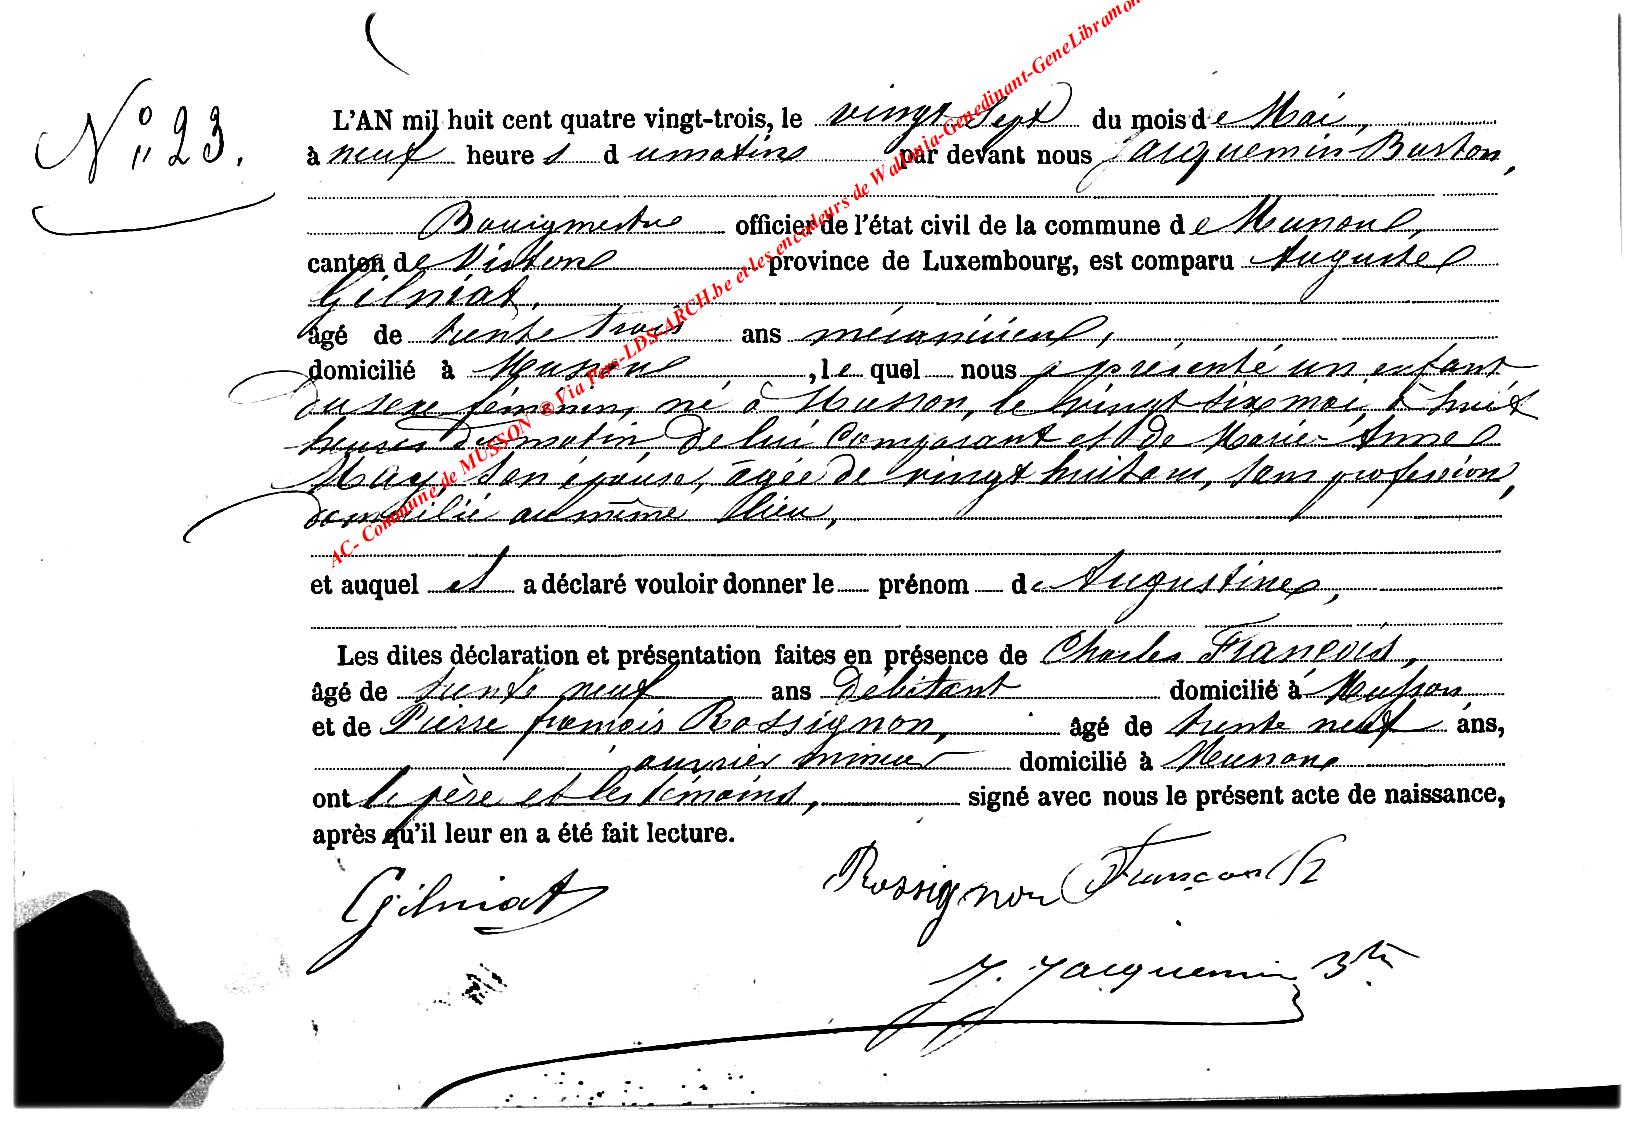 N° 23.
L'AN mil huit cent quatre vingt-trois, le vingt sept du mois de Mai,
à neuf heures du matin par devant nous Jacquemin Burton,
Bourgmestre officier de l'état civil de la commune de Musson,
canton de Virton province de Luxembourg, est comparu Auguste
Gilniat,
âgé de trente trois ans mécanicien,
domicilié à Musson, lequel nous a présenté un enfant
du sexe féminin, né à Musson, le vingt six mai, à huit
heures du matin, de lui comparant et de Marie-Anne
May, son épouse, âgée de vingt huit ans, sans profession,
domicilié au même lieu,
et auquel il a déclaré vouloir donner le prénom de Augustine,
Les dites déclaration et présentation faites en présence de Charles François,
âgé de trente neuf ans Débitant domicilié à Musson
et de Pierre françois Rossignon, âgé de trente neuf ans,
ouvrier mineur domicilié à Musson
ont le père et les témoins, signé avec nous le présent acte de naissance,
après qu'il leur en a été fait lecture.
Gilniat Rossignon François
J. Jacquemin
AC- Commune de MUSSON ® Via Fars-LDS-ARCH.be et les encodeurs de Wallonia-Genedinant-GeneLibramon